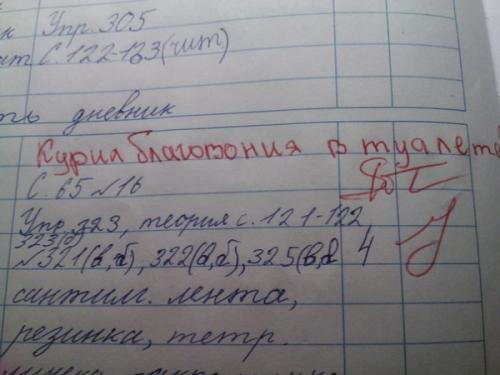 Упр. 305
С. 122-123 (чит)
дневник
Курил благовония в туалете
С 65 №16
Упр. 323, теория с. 121-122
323(а)
№321(в,г), 322(а,б), 325(в, 4
сантим. лента,
резинка, тетр.